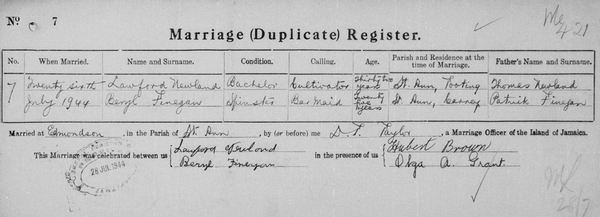 No 7
Marriage (Duplicate) Register.
No. When Married. Name and Surname. Condition. Calling. Age. Parish and Residence at the time of Marriage. Father's Name and Surname.
7 Twenty sixth Lawford Newland Bachelor Cultivator Thirty two years St. Ann, Tooting Thomas Newland
July 1944 Beryl Finegan Spinster Bar Maid Twenty years St. Ann, Patrick Finegan
Married at Edmondson in the Parish of St. Ann, by (or before) me D. Taylor, a Marriage Officer of the Island of Jamaica.
This Marriage was celebrated between us { Lawford Newland in the presence of us { Hubert Brown
Beryl Finegan Olga A. Grant
28 JUL 1944